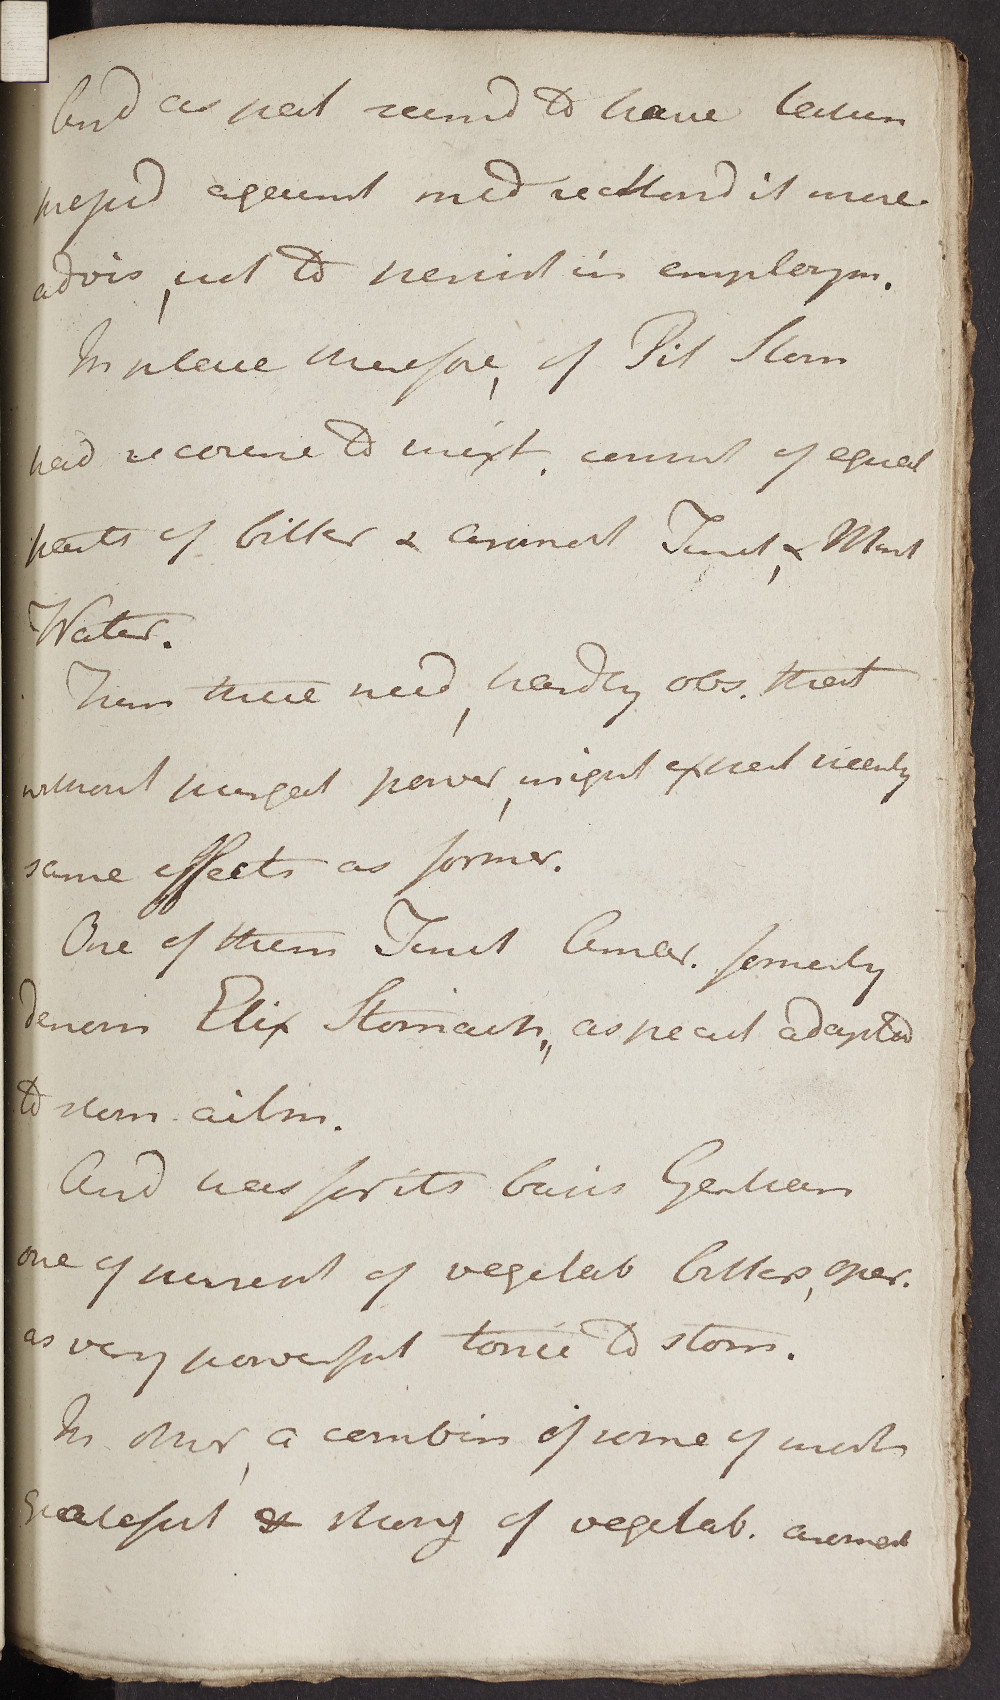 And as pat seemd to have taken
prejud against med reckond it more
advis, not to persist in employm.
In place therefore, of Pil Stom
had recourse to mixt. consist of equal
parts of bitter & aromat Tinct, & Mint
Water.
From these need, hardly obs. that
without purgat power, might expect nearly
same effects as former.
One of them Tinct Amar. formerly
denom Elix Stomach,, as pecul adapted
to stom ailm.
And has for its basis Gentian
one of purest of vegetab bitters, oper.
as very powerful tonic to stom.
In other, a combin of some of most
grateful & strong of vegetab. aromat